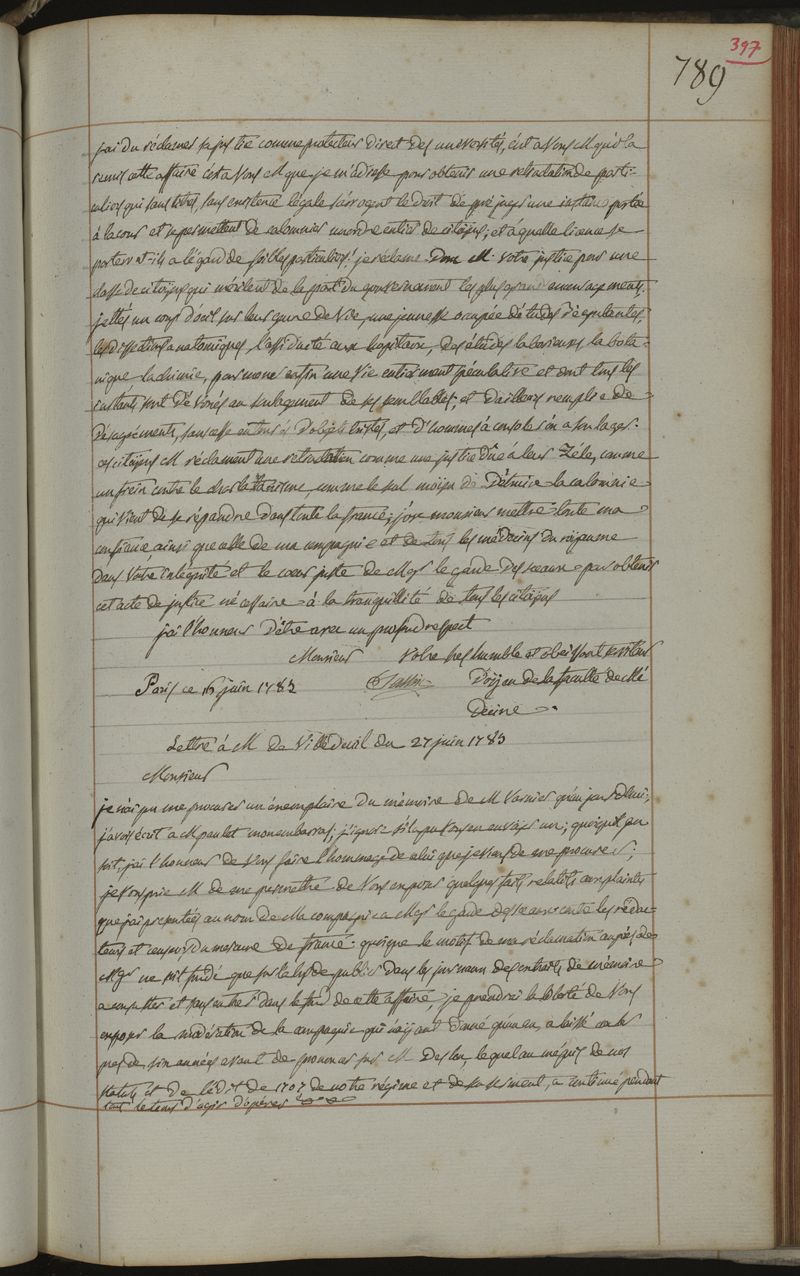 397
789
j'ai du réclamer sa justice comme protecteur direct des universités, c'est a Vous M qu'il a
remis cette affaire c'est a Vous M que je m'adresse pour obtenir une retractation de parti-
culiers qui sans titres, sans existence légale s'arrogent le droit de préjuger une instance portée
à la cour et se permettent de calomnier un ordre entier de citoyens; et à quelle licence se
porteront-ils a l'égard de foibles particuliers! je réclame Donc M. votre justice pour une
classe de citoyens qui méritent de la part du gouvernement les plus grands encouragements.
jettés un coup d'œil sur leur genre de Vie, une jeunesse occupée d'études dégoutantes,
les dissections anatomiques, l'assiduité aux hopitaux, des études laborieuses la bota-
nique la chimie, pour mener enfin une Vie entierement spéculative et dont tous les
instants sont dévoués au soulagement de ses semblables, et d'ailleurs remplie de
Désagréments, sans cesse entourés d'objets tristes, et d'hommes à consoler ou a soulager.
ces citoyens M réclament une retractation comme une justice dûe à leur Zéle, comme
un frein contre le charlatanisme, comme le seul moyen de Détruire la calomnie
qui vient de se répandre dans toute la france; j'ose monsieur mettre toute ma
confiance ainsi que celle de ma compagnie et de tous les médecins du royaume
dans votre intégrité et le cœur juste de Mgr le garde des sceaux pour obtenir
cet acte de justice nécessaire à la tranquillité de tous les citoyens
j'ai l'honneur d'être avec un profond respect
Monsieur Votre tres humble et obeissant serviteur
Paris ce 16 juin 1785 Doyen de la faculté de Mé
decine
Lettre à M de Villeduil du 27 juin 1785
Monsieur
je n'ai pu me procurer un exemplaire du mémoire de M Varnier
j'avois écrit a M paulet mon embarras; j'ignore s'il a pu Vous en envoyer un; quoiqu'il en
soit, j'ai l'honneur de Vous faire l'hommage de celui que je viens de me procurer;
je Vous prie M de me permettre de Vous exposer quelques faits relatifs aux plaintes
que j'ai presentées au nom de Ma compagnie a Mgr le garde des sceaux contre les rédac-
teurs et censeurs du mercure de france. quoique le motif de ma réclamation auprès de
Mgr ne soit fondé que sur publier dans les journaux des extraits de mémoire
a consulter et sans entrer dans le fond de cette affaire, je prendrai la liberté de Vous
exposer la modération de la compagnie
près de six années avant de prononcer sur M Deslon, lequel au mépris de nos
statuts et de l'édit de 1707 de notre régime et de son serment, a continué pendant
tout le tems d'agir d'opérer